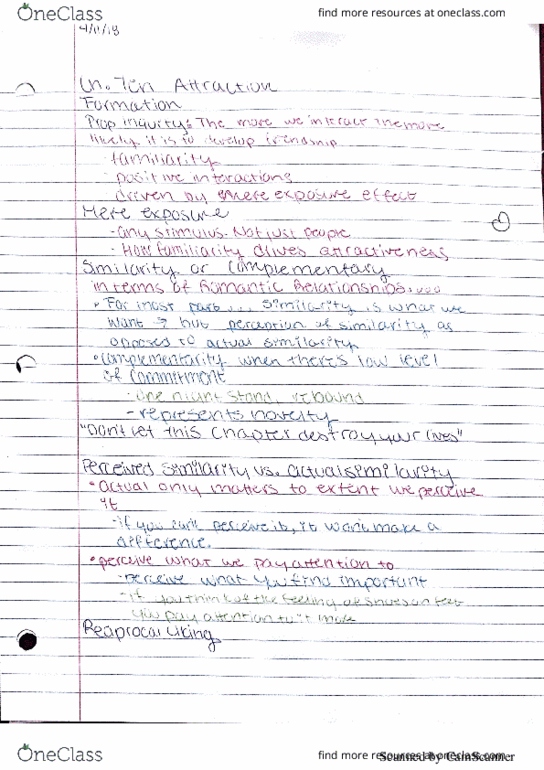 OneClass
find more resources at oneclass.com
4/11/18
Ch. Ten Attraction
Formation
Propinquity: The more we interact the more
likely it is to develop friendship
- familiarity
- positive interactions
- driven by mere exposure effect
Mere exposure
- any stimulus. Not just people
- How familiarity drives attractiveness
Similarity or Complementary
in terms of Romantic Relationships...
• For most part... similarity is what we
want → but perception of similarity as
opposed to actual similarity
• Complementarity when there's low level
of commitment
- one night stand, rebound
- represents novelty
"Don't let this chapter destroy your lives"
Perceived similarity vs. actual similarity
• actual only matters to extent we perceive
it
- if you can't perceive it, it won't make a
difference.
• perceive what we pay attention to
- perceive what you find important
- if you think of the feeling of shoes on feet
you pay attention to it more
Reciprocal Liking
OneClass
find more resources at oneclass.com
Scanned by CamScanner